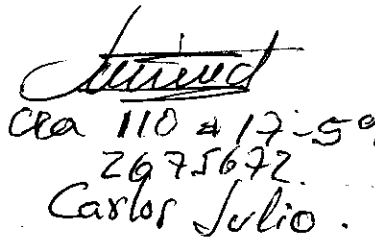 Cra 110 # 17-59
2675672.
Carlos Julio.